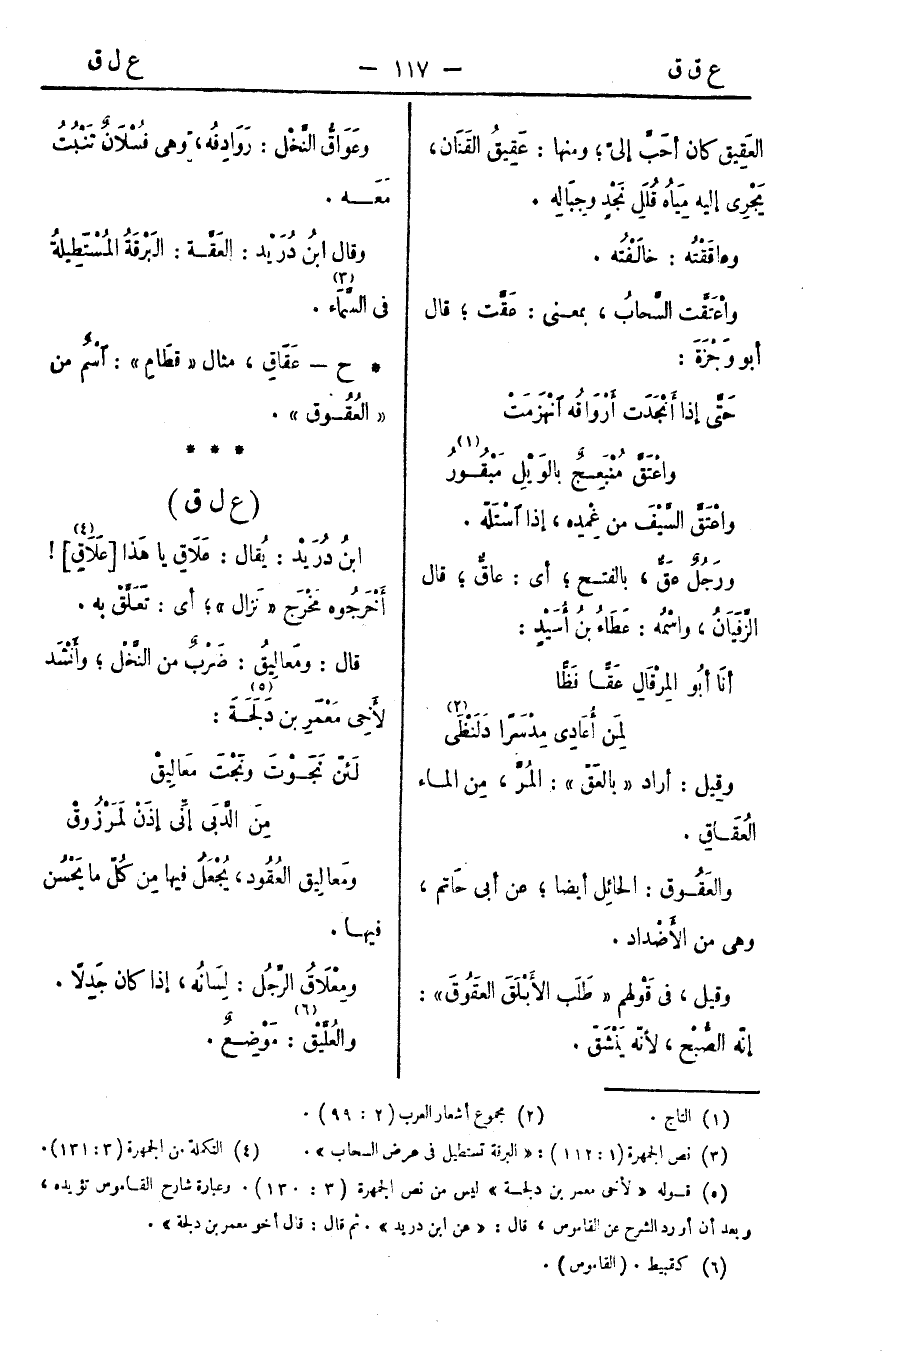 ع ق ق
— ١١٧ —
ع ل ق
العَقِيق كان أحَبَّ إلىّ ؛ ومنها : عَقِيقُ القَنَان ،
يَجْرِى إليه مِيَاهُ قُلَلِ نَجْدٍ وجِبَالِه .
وعاقَقْتُه : خالَفْتُه .
واعْتَقَّت السَّحابُ ، بمعنى : عَقَّت ؛ قال
أبو وَجْزَةَ :
حَتَّى إذا أَنْجَدَت أَرْوَاقُه ٱنْهَزَمَتْ
واعْتَقَّ مُنْبَعِجٌ بالوَبْلِ مَبْقُورُ (١)
واعْتَقَّ السَّيْفَ من غِمْدِه ، إذا ٱسْتَلَّه .
ورَجُلٌ عَقٌّ ، بالفتح ؛ أى : عاقٌّ ؛ قال
الزَّفَيَانُ ، واسْمُه : عَطَاءُ بنُ أُسَيْدٍ :
أنَا أبُو المِرْقَالِ عَقًّا فَظًّا
لِمَن أُعَادِى مِدْسَرًا دَلَنْظَى (٢)
وقِيل : أراد « بالعَقّ » : المُرَّ ، مِن المـاء
العُقَـاقِ .
والعَقُـوق : الحائِل أيضا ؛ عن أبى حَاتم ،
وهى من الأَضْداد .
وقيل ، فى قَوْلهم « طَلَب الأَبْلَقَ العَقُوقَ» :
إنّه الصُّبْح ، لأنّه يَنْشَقّ .
وعَوَاقُّ النَّخْل : رَوَادِفُه ، وهى فُسْلَانٌ تَنْبُتُ
مَعَـه .
وقال ابنُ دُرَيْد : العَقَّـة : البَرْقَةُ المُسْتَطِيلةُ
فى السَّمَاء (٣) .
* ح – عَقَاقِ ، مثال « قطَامِ » : ٱسْمٌ من
« العُقُـوق » .
* * *
(ع ل ق)
ابنُ دُرَيْد : يُقال : عَلَاقِ يا هَذا [عَلَاقِ] (٤) !
أَخْرَجُوه مَخْرَج « نَزَال » ؛ أى : تَعَلَّقْ به .
قال : ومَعالِيقُ : ضَرْبٌ من النَّخْل ؛ وأَنْشَد
لأَخِى مَعْمَرِ بن دَلَجَـةَ (٥) :
لَئِنْ نَجَـوْتَ ونَجَتْ مَعَالِيقْ
مِنَ الدَّبَى إِنِّى إذَنْ لَمَرْزُوقْ
ومَعاليق العُقُود ، يُجْعَلُ فيها مِن كُلّ ما يَحْسُن
فيهـا .
ومِعْلَاقُ الرَّجُل : لِسَانُه ، إذا كان جَدِلًا .
والعُلَّيْق (٦) : مَوْضِـعٌ .
(١) التاج .
(٢) مجموع أشعار العرب (٢ : ٩٩) .
(٣) نص الجمهرة (١ : ١١٢) : « البرقة تستطيل فى عرض السحاب » .
(٤) التكملة من الجمهرة (٣ : ١٣١) .
(٥) قـوله « لأخى معمر بن دلجـة » ليس من نص الجمهرة (٣ : ١٣٠) . وعبارة شارح القاموس تؤيده ،
وبعد أن أورد الشرح عن القاموس ، قال : « عن ابن دريد » . ثم قال : قال أخو معمر بن دلجة » .
(٦) كقبيط . (القاموس) .